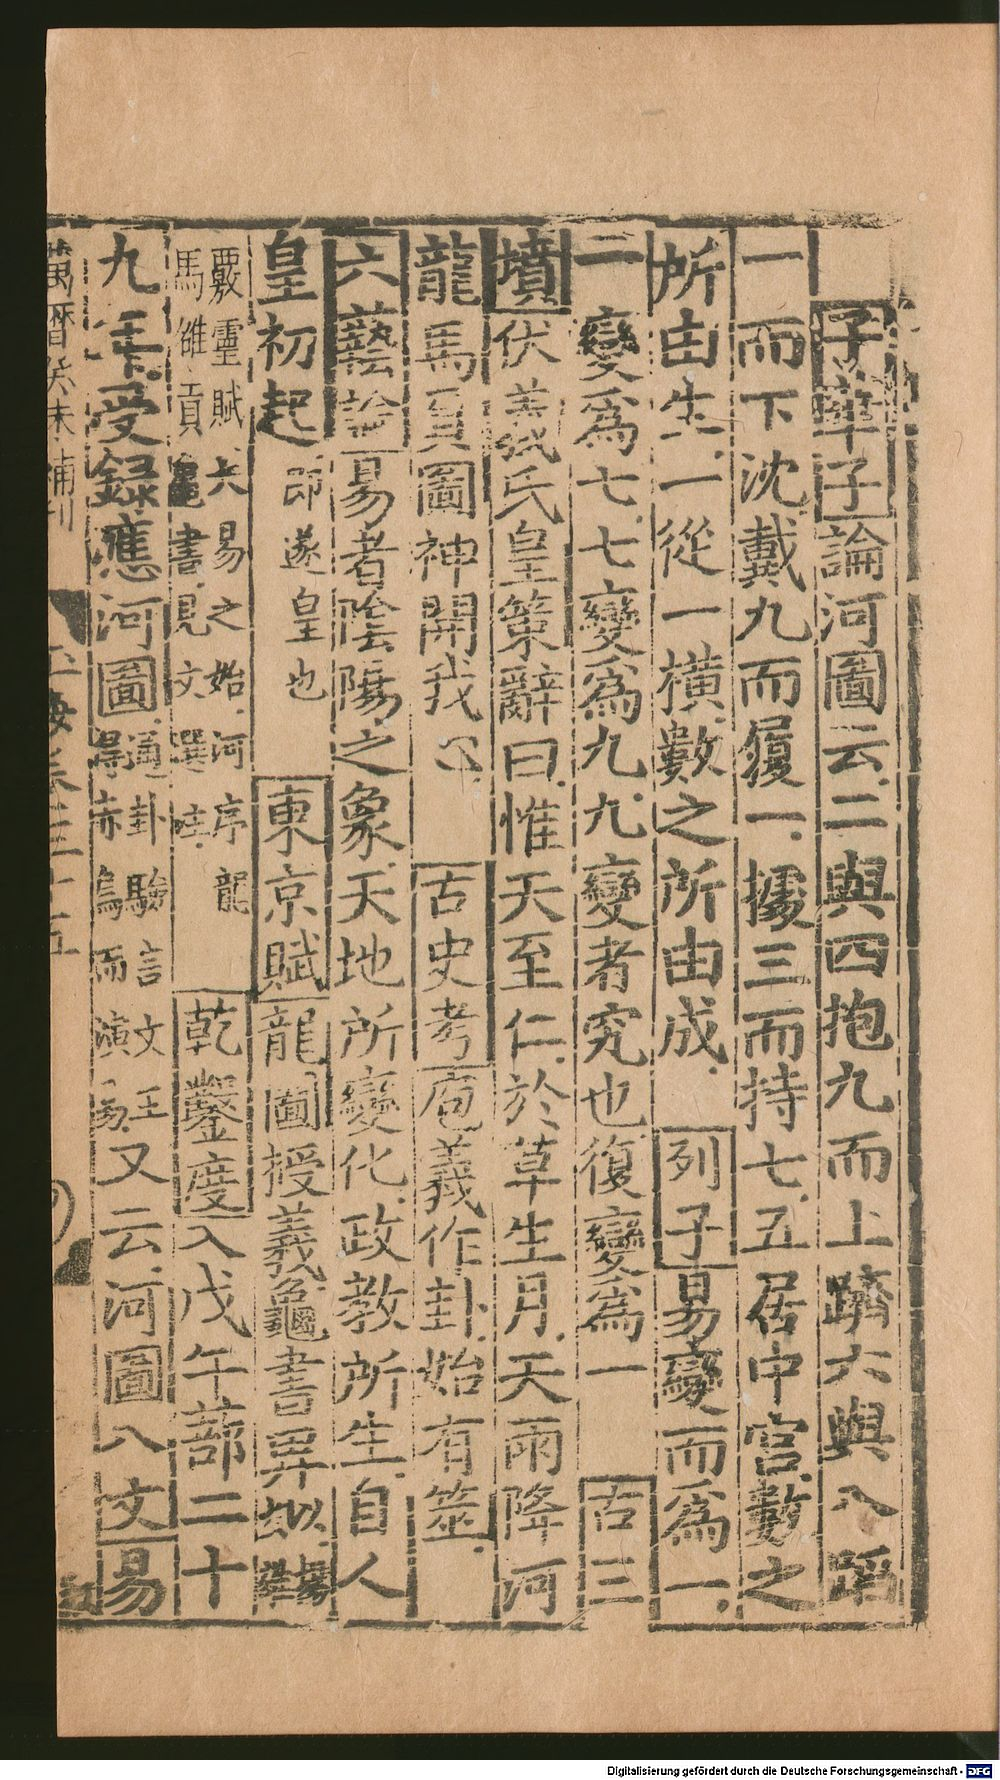 子華子論河圖云二與四抱九而上躋六與八蹈
一而下沈戴九而履一據三而持七五居中宮數之
所由生一從一橫數之所由成 列子易變而爲一
二變爲七七變爲九九變者究也復變爲一 古三
墳伏羲氏皇策辭曰惟天至仁於草生月天雨降河
龍馬負圖神開我心 古史考庖羲作卦始有筮
六藝論易者隂陽之象天地所變化政教所生自人
皇初起 即遂皇也 東京賦龍圖授羲龜書畀姒
覈靈賦大易之始河序龍
馬雒貢龜書見文選註 乾鑿度入戊午蔀二十
九年受錄應河圖 通卦驗言文王
得赤烏而演易 又云河圖八文易
萬曆癸未補刊 玉海卷三十五
Digitalisierung gefördert durch die Deutsche Forschungsgemeinschaft - DFG